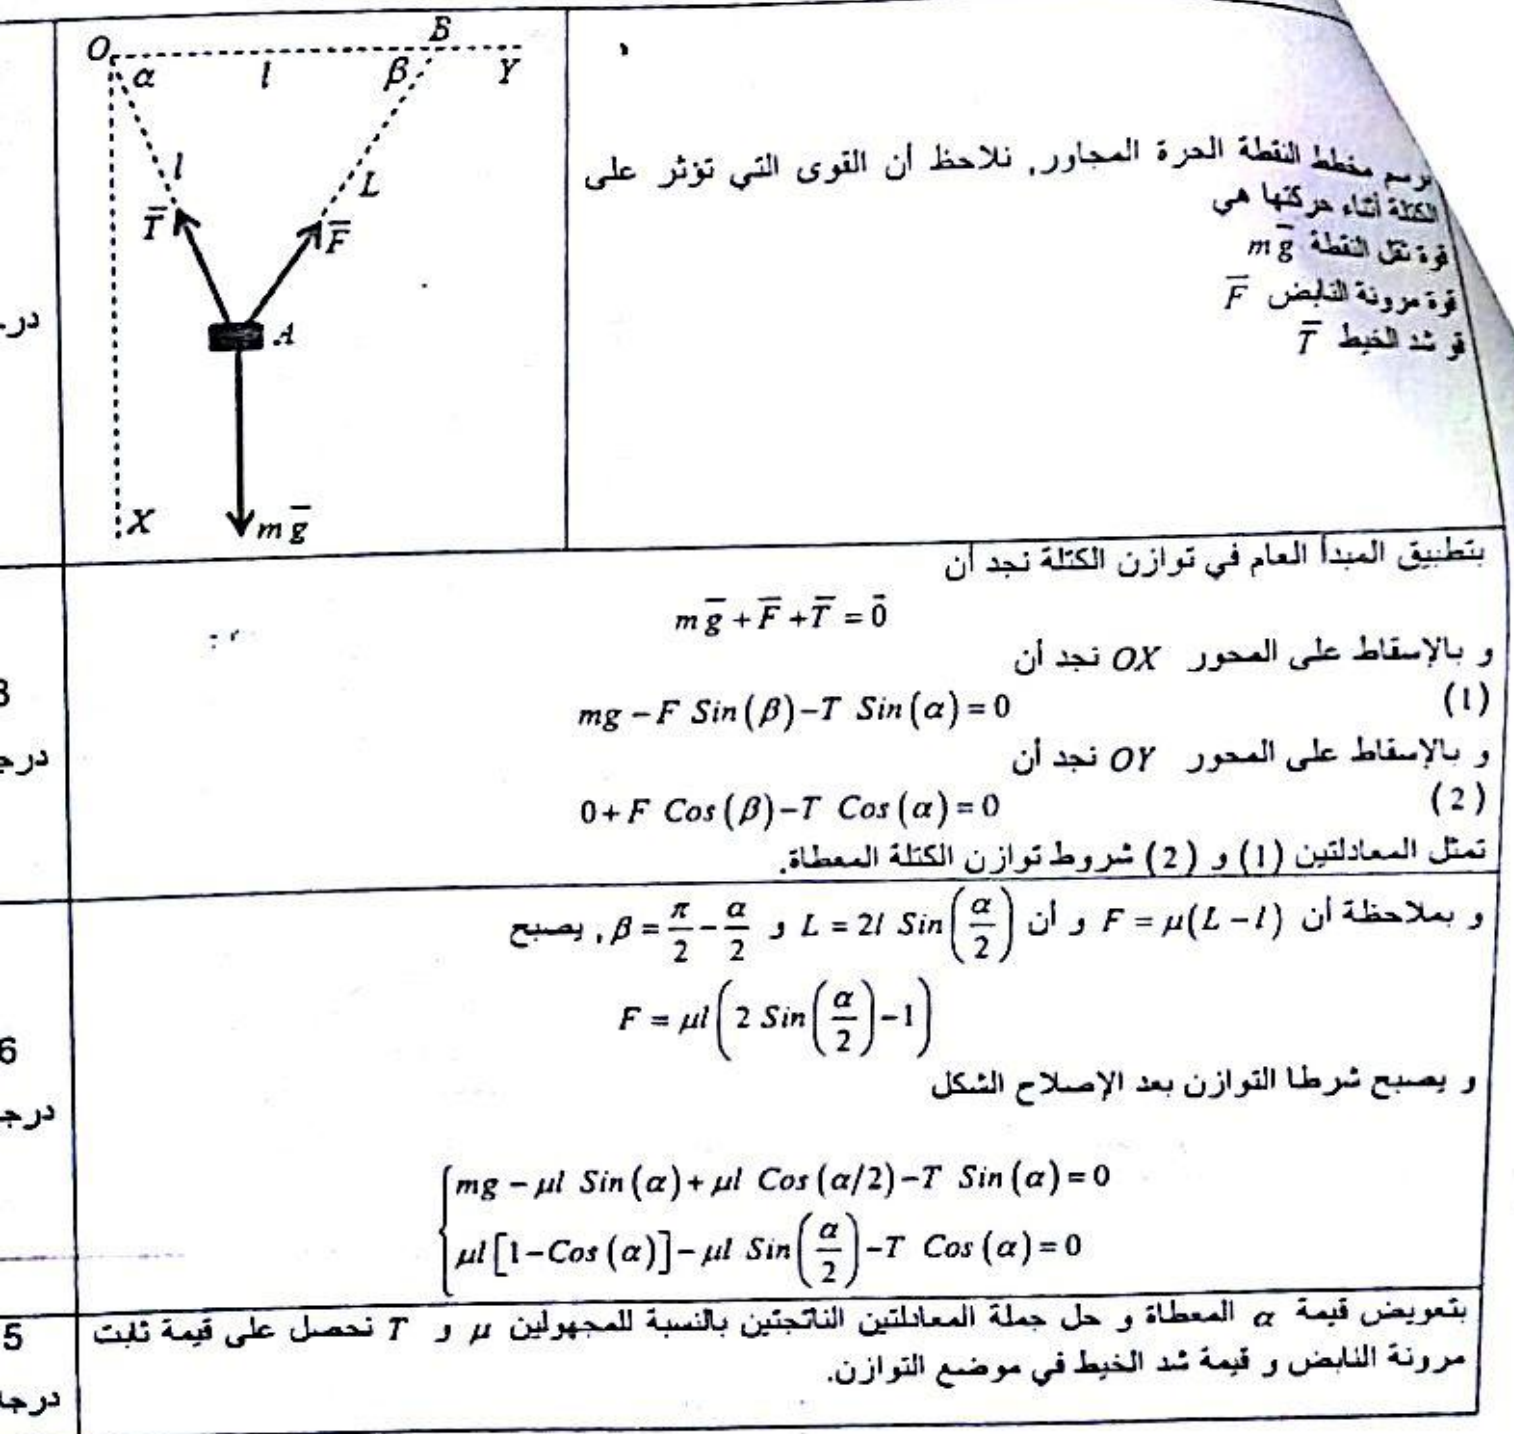 O
B
α
l
β
Y
l
L
T̅
F̅
A
X
m g̅
نرسم مخطط النقطة الحرة المجاور, نلاحظ أن القوى التي تؤثر على
الكتلة أثناء حركتها هي
قوة ثقل النقطة m g̅
قوة مرونة النابض F̅
قو شد الخيط T̅
بتطبيق المبدأ العام في توازن الكتلة نجد أن
m g̅ + F̅ + T̅ = 0̅
و بالإسقاط على المحور OX نجد أن
mg − F Sin(β) − T Sin(α) = 0 (1)
و بالإسقاط على المحور OY نجد أن
0 + F Cos(β) − T Cos(α) = 0 (2)
تمثل المعادلتين (1) و (2) شروط توازن الكتلة المعطاة.
و بملاحظة أن F = μ(L − l) و أن L = 2l Sin(α/2) و β = π/2 − α/2 , يصبح
F = μl(2 Sin(α/2) − 1)
و يصبح شرطا التوازن بعد الإصلاح الشكل
mg − μl Sin(α) + μl Cos(α/2) − T Sin(α) = 0
μl[1 − Cos(α)] − μl Sin(α/2) − T Cos(α) = 0
بتعويض قيمة α المعطاة و حل جملة المعادلتين الناتجتين بالنسبة للمجهولين μ و T نحصل على قيمة ثابت
مرونة النابض و قيمة شد الخيط في موضع التوازن.
6
5